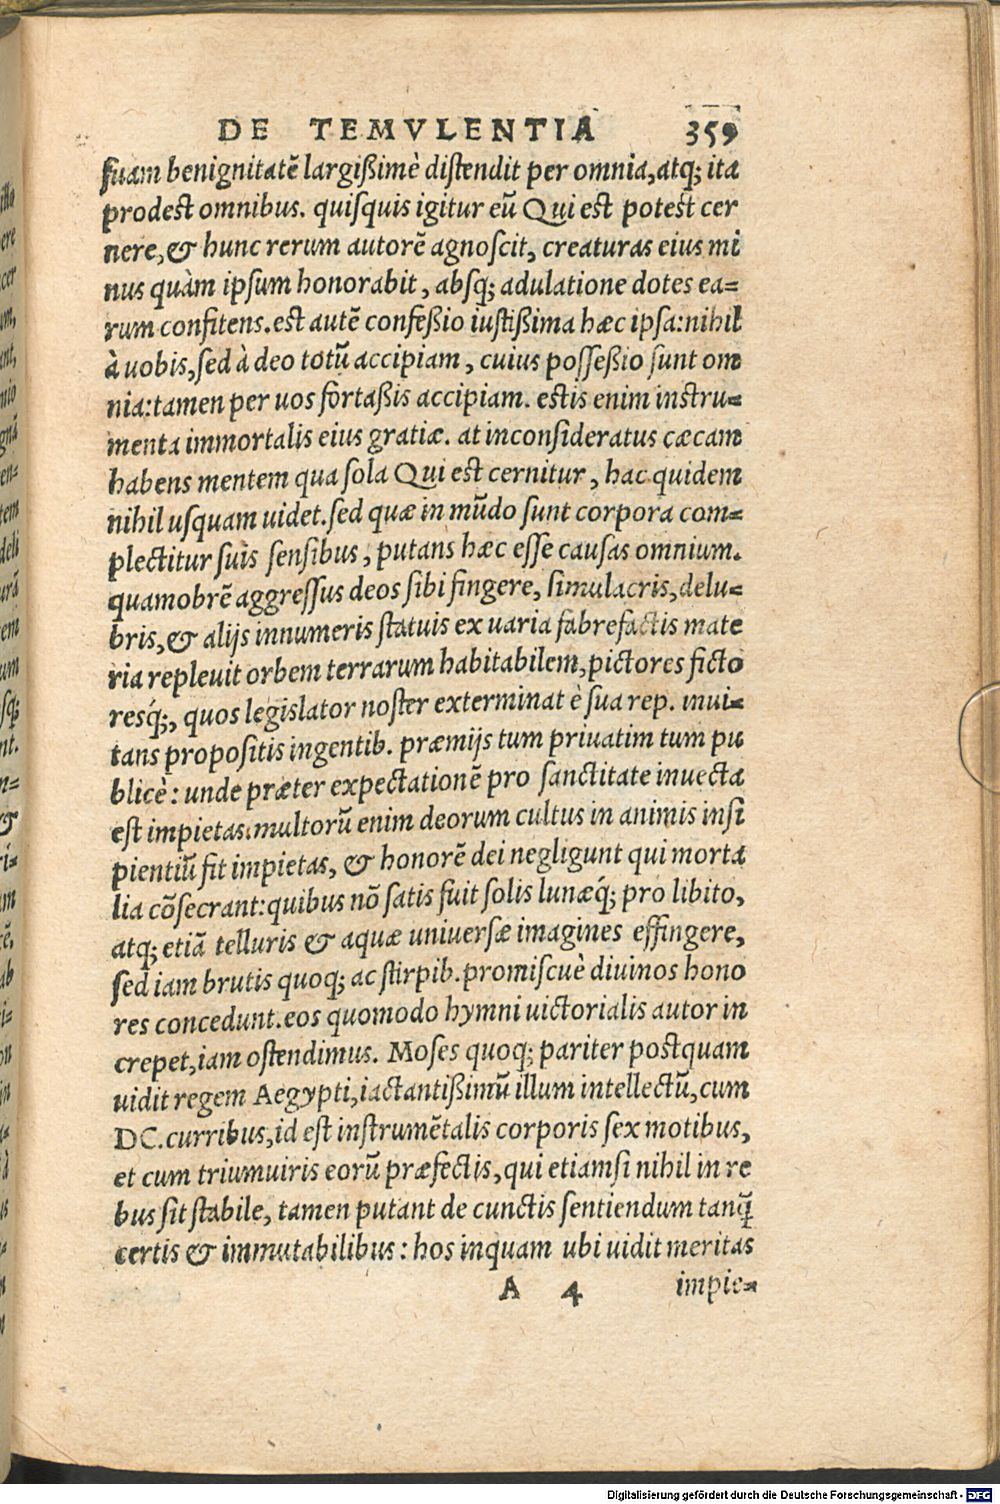 DE TEMVLENTIA 359
ſuam benignitatē largißimè diſtendit per omnia,atq; ita
prodest omnibus. quiſquis igitur eū Qui est potest cer
nere,& hunc rerum autorē agnoſcit, creaturas eius mi
nus quàm ipſum honorabit, abſq; adulatione dotes ea=
rum confitens.est autē confeßio iuſtißima hæc ipſa:nihil
à uobis,ſed à deo totū accipiam, cuius poſſeßio ſunt om
nia:tamen per uos fortaßis accipiam. estis enim inſtru=
menta immortalis eius gratiæ. at inconſideratus cæcam
habens mentem qua ſola Qui est cernitur, hac quidem
nihil uſquam uidet.ſed quæ in mūdo ſunt corpora com=
plectitur ſuis ſenſibus, putans hæc eſſe cauſas omnium.
quamobrē aggreſſus deos ſibi fingere, ſimulacris,delu=
bris,& alijs innumeris ſtatuis ex uaria fabrefactis mate
ria repleuit orbem terrarum habitabilem,pictores ficto
resq́;, quos legiſlator noſter exterminat è ſua rep. inui=
tans propoſitis ingentib. præmijs tum priuatim tum pu
blicè: unde præter expectationē pro ſanctitate inuecta
eſt impietas.multorū enim deorum cultus in animis inſi
pientiū fit impietas, & honorē dei negligunt qui morta
lia cōſecrant:quibus nō ſatis fuit ſolis lunæq́; pro libito,
atq; etiā telluris & aquæ uniuerſæ imagines effingere,
ſed iam brutis quoq; ac ſtirpib.promiſcuè diuinos hono
res concedunt.eos quomodo hymni uictorialis autor in
crepet,iam oſtendimus. Moſes quoq; pariter postquam
uidit regem Aegypti,iactantißimū illum intellectū,cum
DC.curribus,id eſt inſtrumētalis corporis ſex motibus,
et cum triumuiris eorū præfectis,qui etiamſi nihil in re
bus ſit ſtabile, tamen putant de cunctis ſentiendum tanq̄
certis & immutabilibus: hos inquam ubi uidit meritas
A 4 impie=
Digitalisierung gefördert durch die Deutsche Forschungsgemeinschaft - DFG